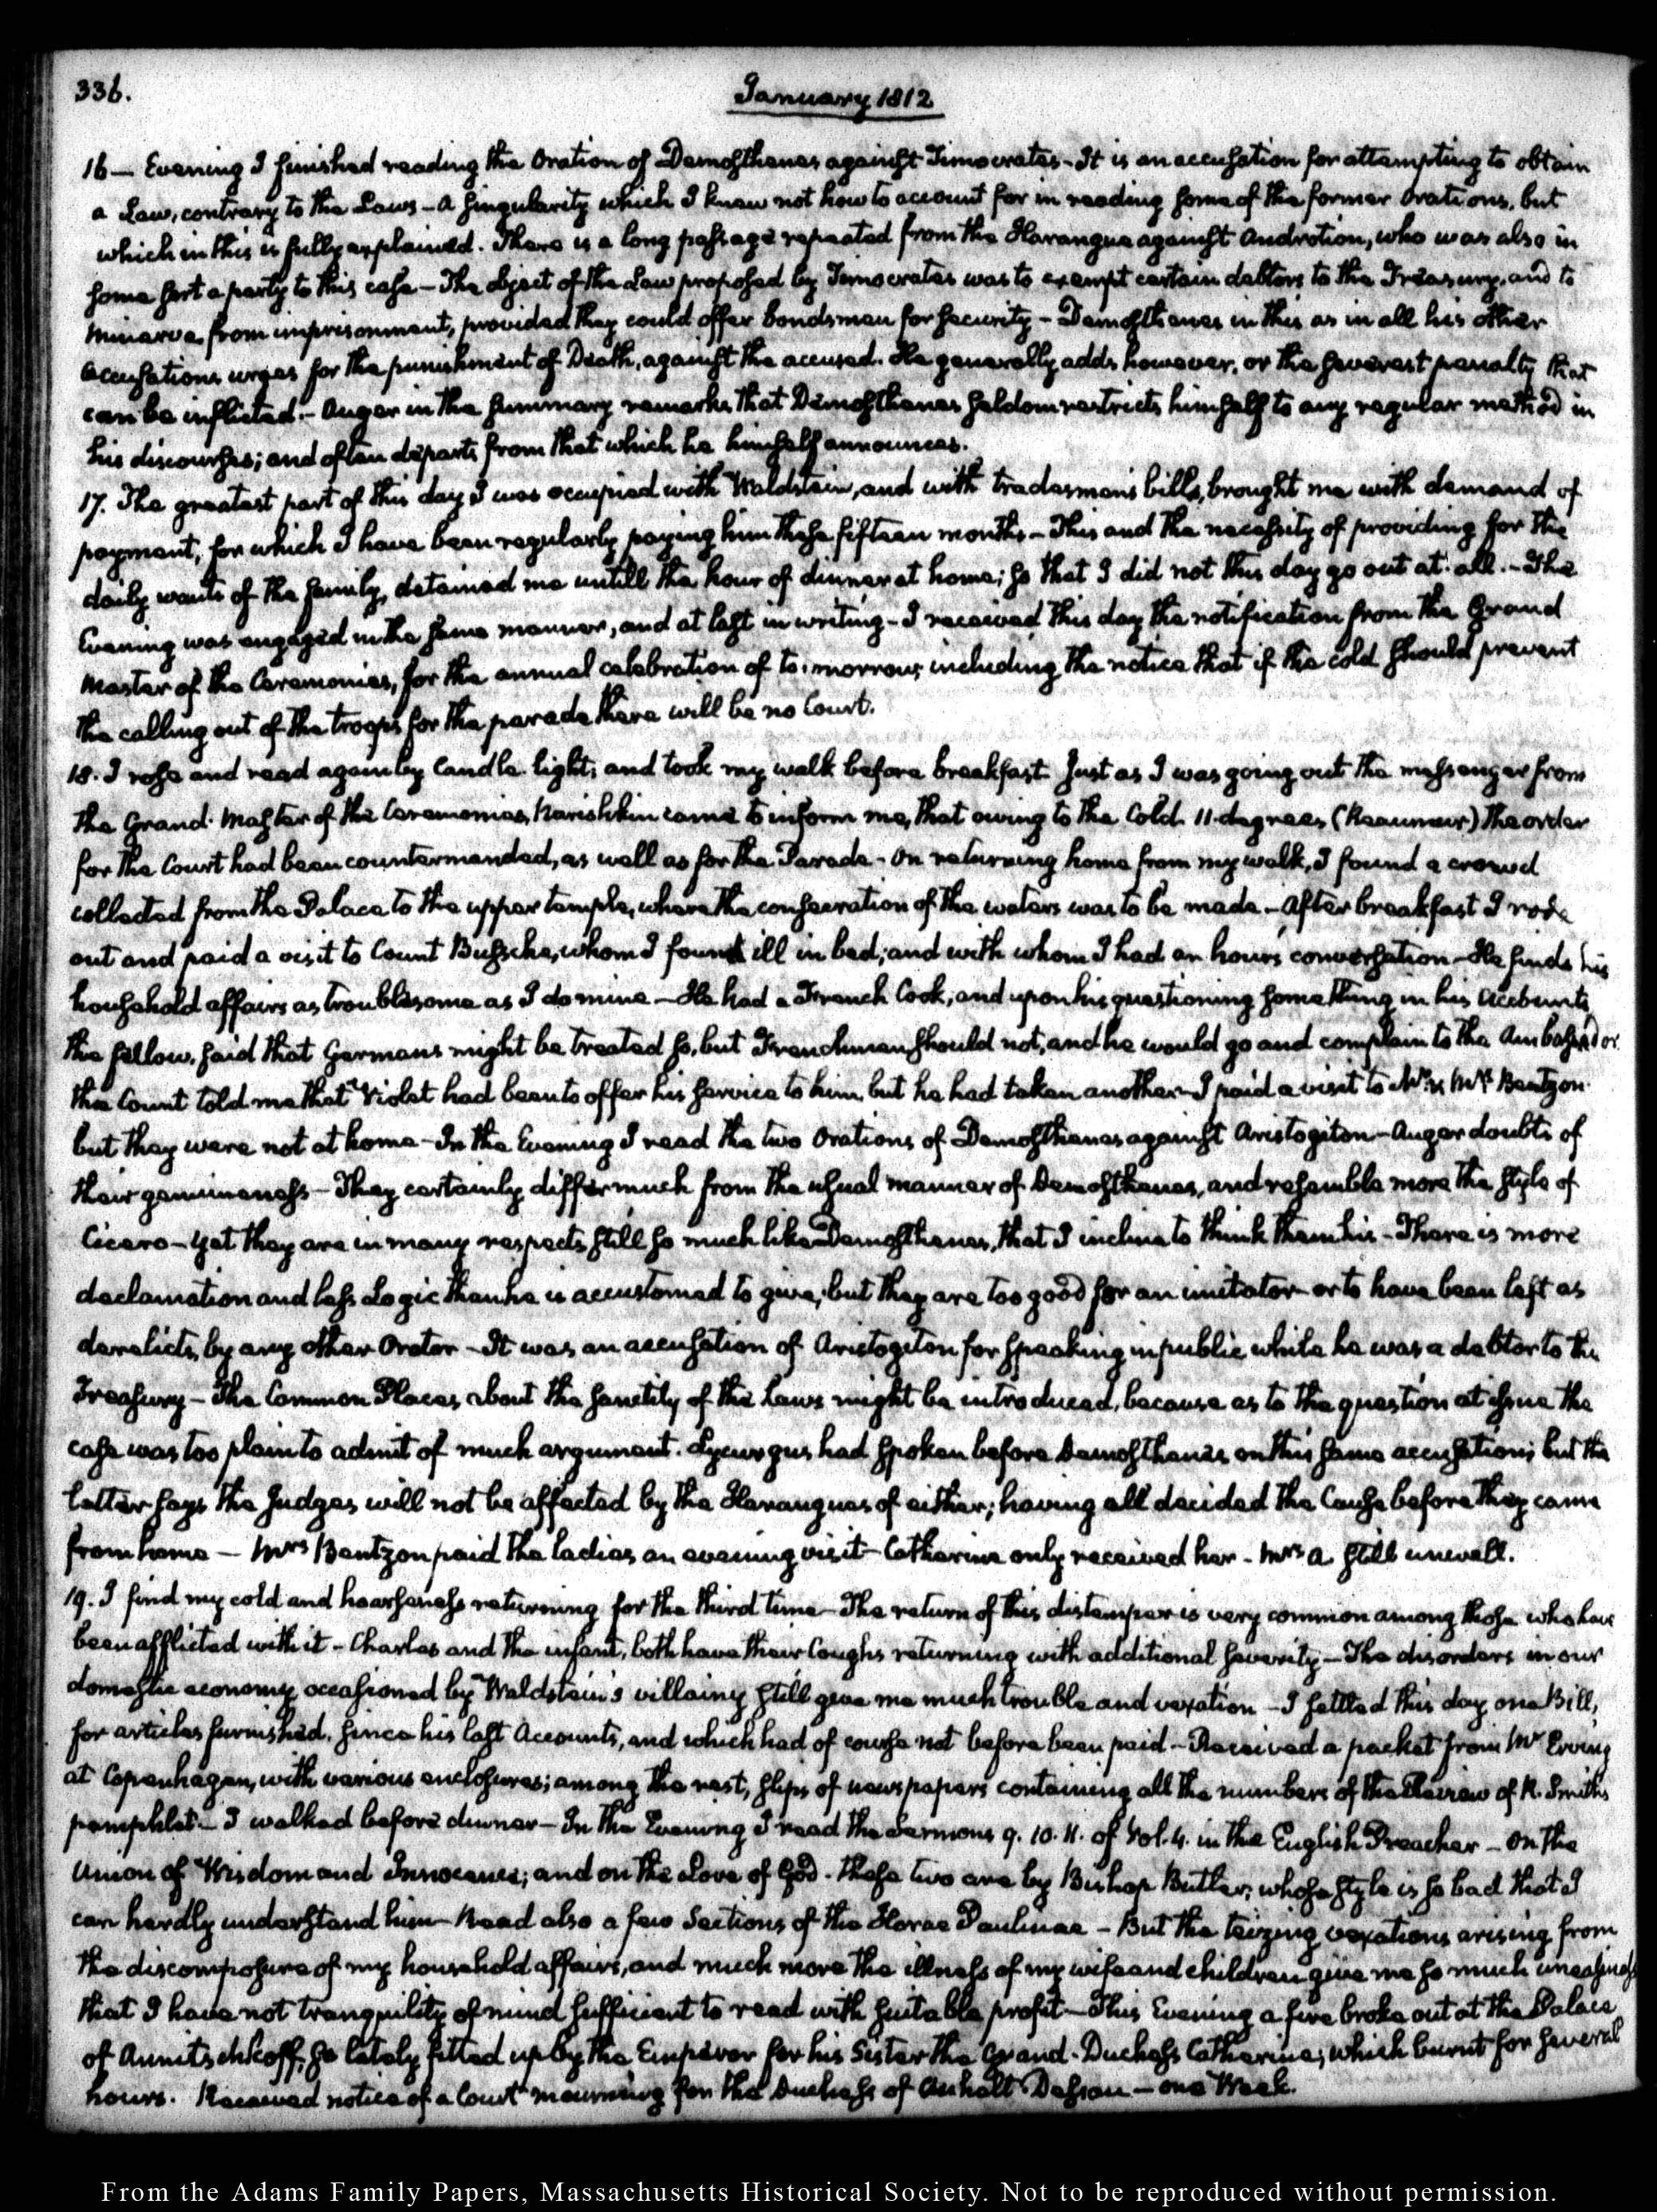 336.
January 1812
16 — Evening I finished reading the Oration of Demosthenes against Timocrates - It is an accusation for attempting to obtain
a Law, contrary to the Laws - A singularity which I knew not how to account for in reading some of the former Orations, but
which in this is fully explained. There is a long passage repeated from the Harangue against Androtion, who was also in
some sort a party to this case - The object of the Law proposed by Timocrates was to exempt certain debtors to the Treasury, and to
Minerva from imprisonment, provided they could offer bondsmen for security - Demosthenes in this as in all his other
accusations urges for the punishment of Death, against the accused. He generally adds however, or the severest penalty that
can be inflicted. - Auger in the summary remarks that Demosthenes seldom restricts himself to any regular method in
his discourses; and often departs from that which he himself announces.
17. The greatest part of this day I was occupied with Waldstein, and with tradesmen's bills, brought me with demand of
payment, for which I have been regularly paying him these fifteen months - This and the necessity of providing for the
daily wants of the family, detained me untill the hour of dinner at home; so that I did not this day go out at all. - The
Evening was engaged in the same manner, and at last in writing - I received this day the notification from the Grand
Master of the Ceremonies, for the annual celebration of to-morrow; including the notice that if the cold should prevent
the calling out of the troops for the parade there will be no Court.
18. I rose and read again by Candle-light; and took my walk before breakfast. Just as I was going out the messenger from
the Grand-Master of the Ceremonies, Narishkin came to inform me, that owing to the Cold. 11 degrees (Reaumeur) the order
for the Court had been countermanded, as well as for the Parade - On returning home from my walk, I found a crowd
collected from the Palace to the upper temple, where the consecration of the waters was to be made - After breakfast I rode
out and paid a visit to Count Bussche, whom I found ill in bed; and with whom I had an hour's conversation - He finds his
household affairs as troublesome as I do mine - He had a French Cook, and upon his questioning something in his Accounts
the fellow, said that Germans might be treated so, but Frenchmen should not, and he would go and complain to the Ambassador.
The Count told me that Violet had been to offer his service to him, but he had taken another - I paid a visit to Mr. & Mrs. Bentzon
but they were not at home - In the Evening I read the two Orations of Demosthenes against Aristogiton - Auger doubts of
their genuineness - They certainly differ much from the usual manner of Demosthenes, and resemble more the style of
Cicero - Yet they are in many respects still so much like Demosthenes, that I incline to think them his - There is more
declamation and less Logic than he is accustomed to give; but they are too good for an imitator - or to have been left as
derelicts, by any other Orator - It was an accusation of Aristogiton for speaking in public while he was a debtor to the
Treasury - The Common Places about the sanctity of the Laws might be introduced, because as to the question at issue the
case was too plain to admit of much argument. Lycurgus had spoken before Demosthenes on this same accusation; but the
latter says the Judges will not be affected by the Harangues of either; having all decided the Cause before they came
from home — Mrs Bentzon paid the ladies an evening visit - Catharine only received her - Mrs A. still unwell.
19. I find my cold and hoarseness returning for the third time - The return of this distemper is very common among those who have
been afflicted with it - Charles and the infant, both have their Coughs returning with additional severity - The disorders in our
domestic economy occasioned by Waldstein's villainy still give me much trouble and vexation - I settled this day one Bill,
for articles furnished, since his last Accounts, and which had of course not before been paid - Received a packet from Mr Erving
at Copenhagen, with various enclosures; among the rest, slips of newspapers containing all the numbers of the Review of R. Smith's
pamphlet - I walked before dinner - In the Evening I read the Sermons 9. 10. 11. of Vol. 4. in the English Preacher - On the
Union of Wisdom and Innocence; and on the Love of God - these two are by Bishop Butler; whose style is so bad that I
can hardly understand him - Read also a few Sections of the Horae Paulinae - But the teizing vexations arising from
the discomposure of my household affairs, and much more the illness of my wife and children give me so much uneasiness
that I have not tranquility of mind sufficient to read with suitable profit - This Evening a fire broke out at the Palace
of Annitschkoff, so lately fitted up by the Emperor for his Sister the Grand-Duchess Catherine; which burnt for several
hours. Received notice of a Court mourning for the Duchess of Anhalt Dessau - one Week.
From the Adams Family Papers, Massachusetts Historical Society. Not to be reproduced without permission.